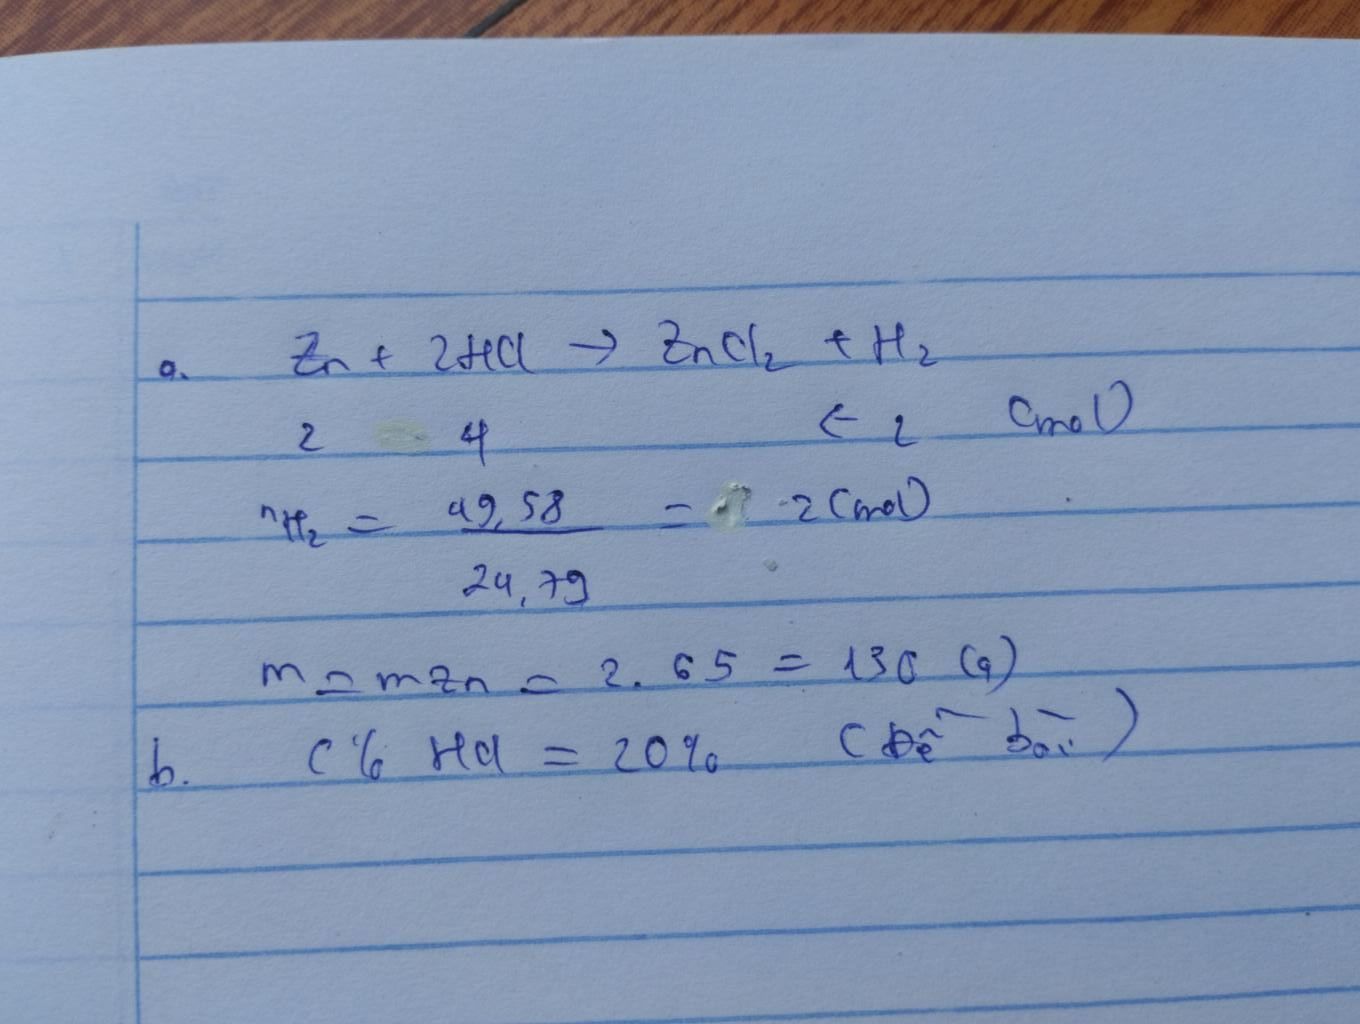 a. Zn + 2HCl → ZnCl₂ + H₂
2 4 ← 2 (mol)
nH₂ = 49,58 / 24,79 = 2 (mol)
m = mZn = 2. 65 = 130 (g)
b. C% HCl = 20% (Đề bài)